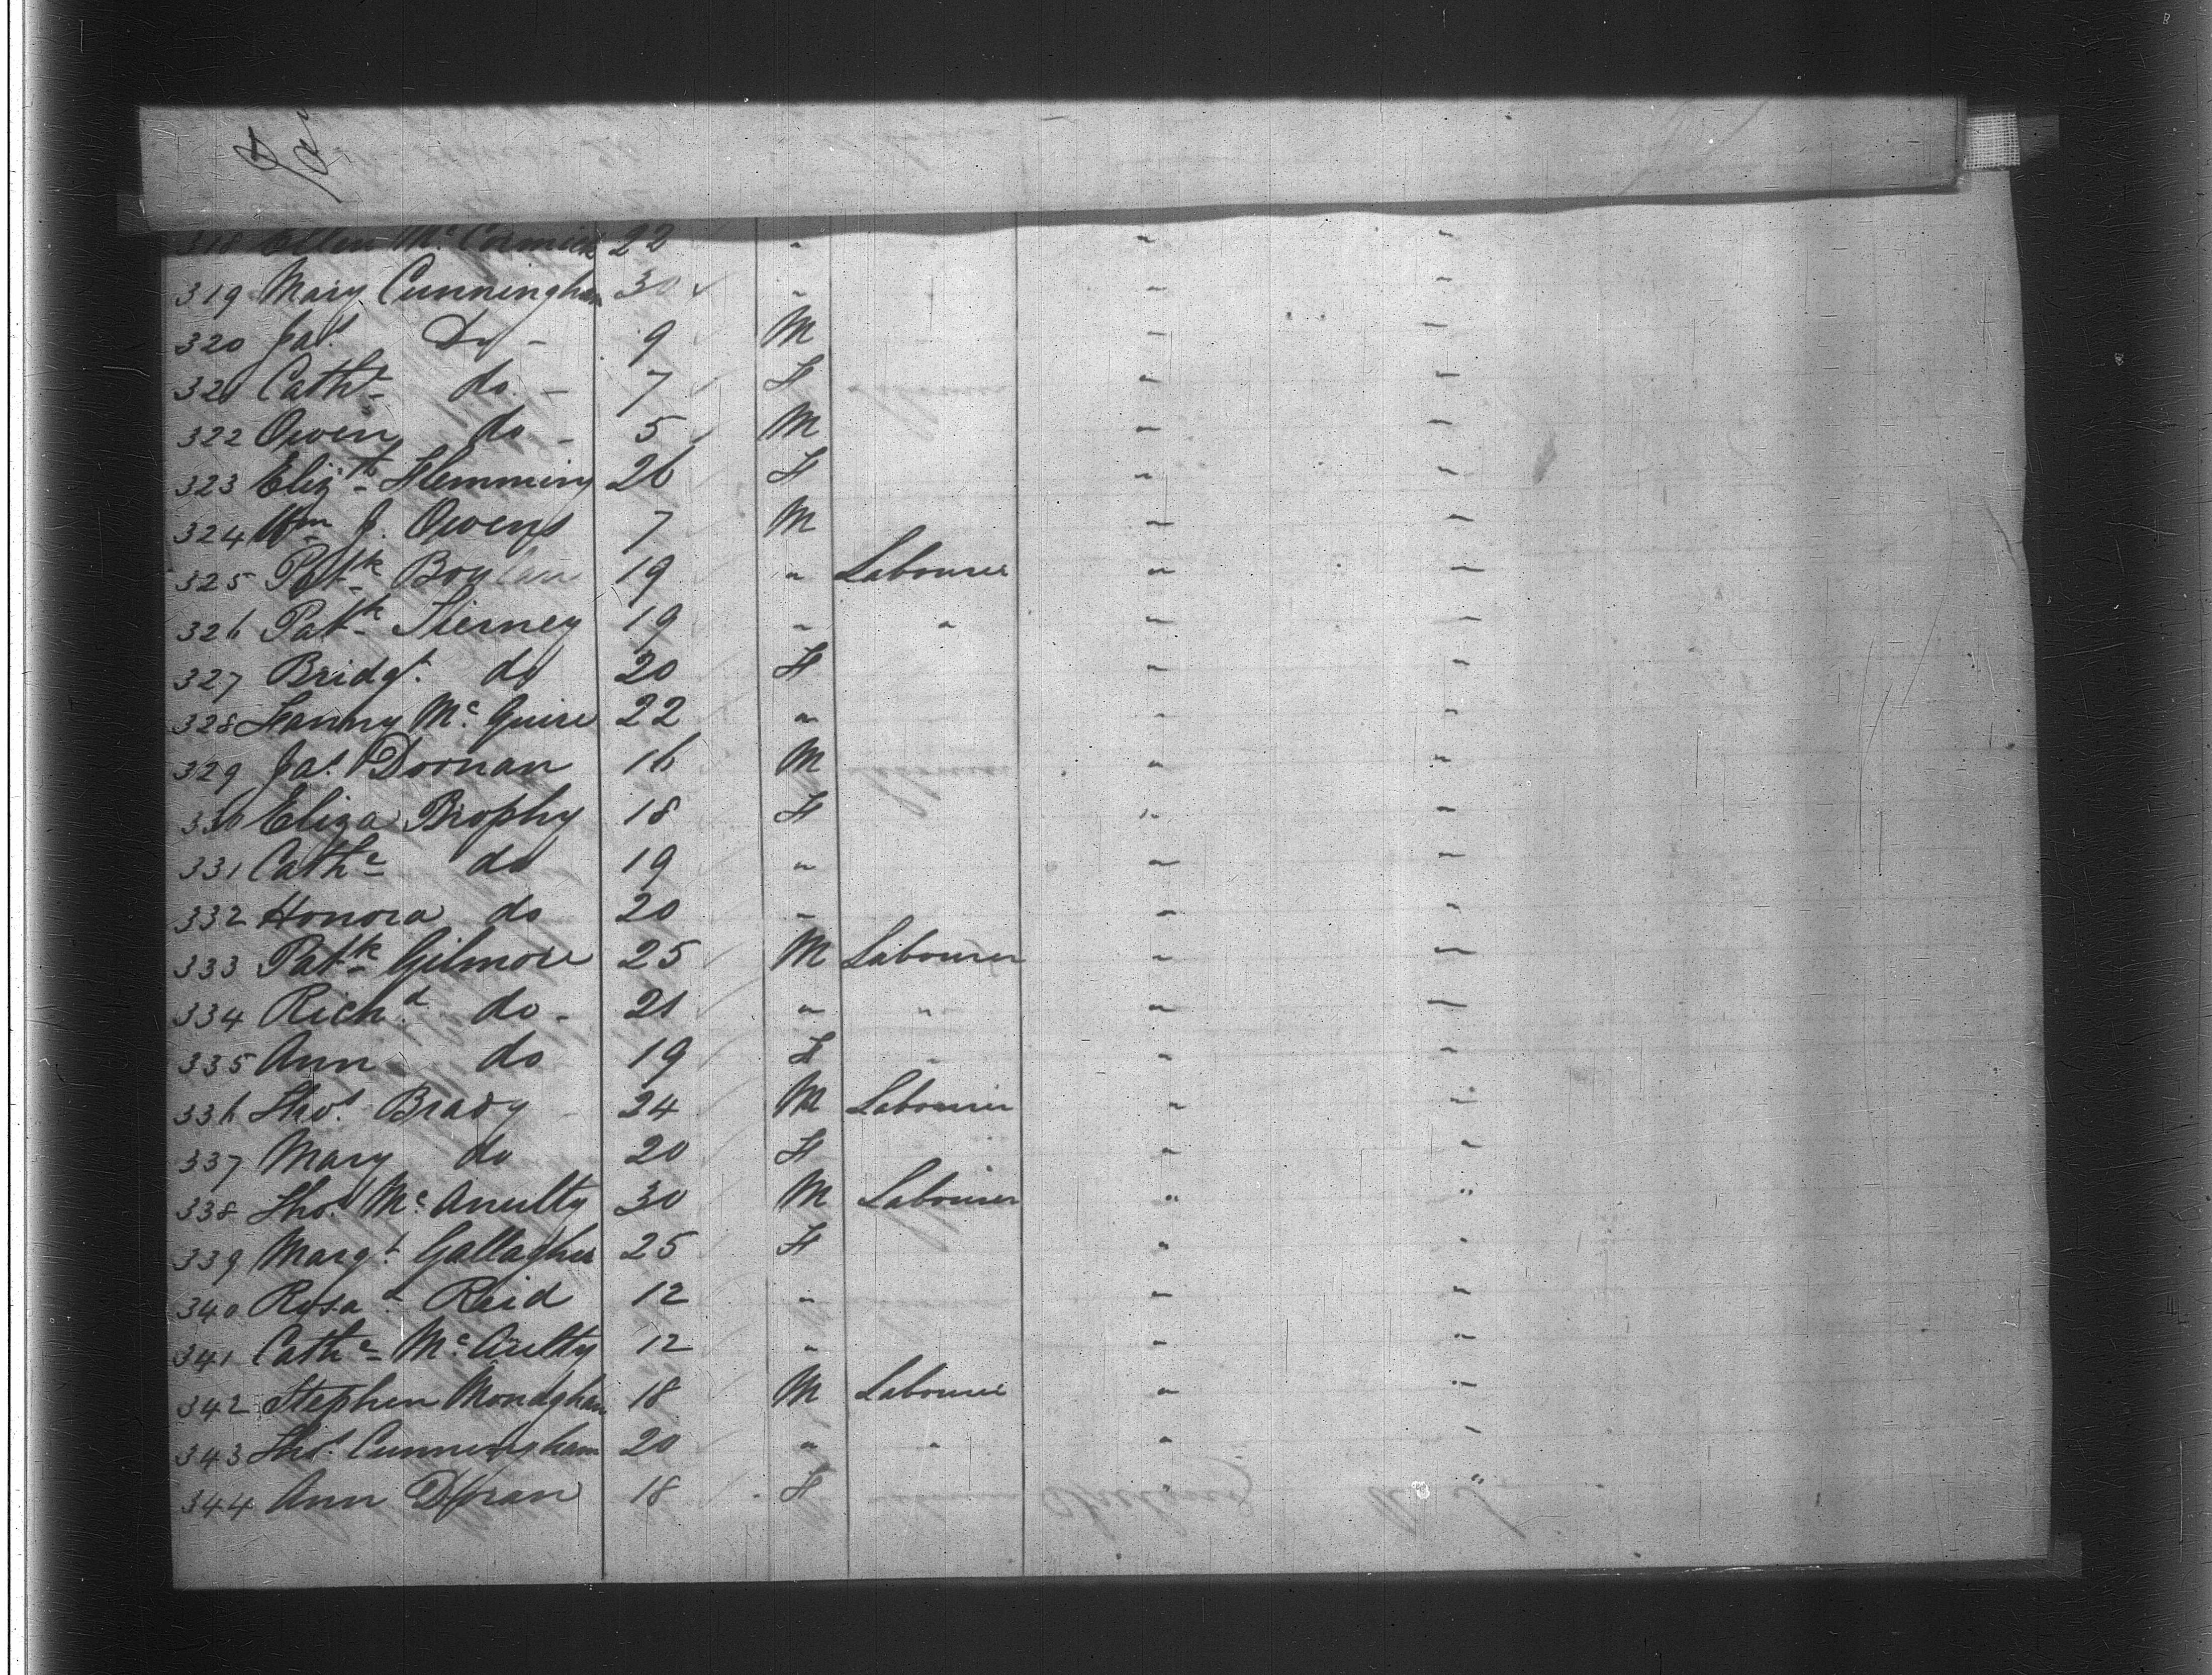 318 Ellen Mc Cormick 22 " " "
319 Mary Cunningham 30 " " "
320 Jas Do - 9 M " "
321 Cathe do - 7 F " "
322 Owen do - 5 M " "
323 Elizth Flemming 26 F " "
324 Wm J. Owens 7 M " "
325 Patk 19 " Labourer " "
326 Patk Tierney 19 " " " "
327 Bridgt do 20 F " "
328 Fanny Mc Guire 22 " " "
329 Jas Doonan 16 M " "
330 Eliza Brophy 18 F " "
331 Cathe do 19 " " "
332 Honora do 20 " " "
333 Patk Gilmore 25 M Labourer " "
334 Richd do - 21 " " " "
335 Ann do 19 F " " "
336 Thos Brady 24 M Labourer " "
337 Mary do 20 F " "
338 Thos Mc Anulty 30 M Labourer " "
339 Margt Gallagher 25 F " "
340 Rosa Reid 12 " " "
341 Cathe Mc Aulty 12 " " "
342 Stephen Monaghan 18 M Labourer " "
343 Thos Cunningham 20 " " " "
344 Ann Doran 18 F " "